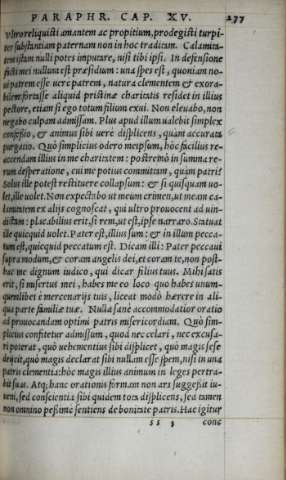 PARAPHR. CAP. XV. 277
vltro reliquisti amantem ac propitium, prodegisti turpi-
ter substantiam paternam non in hoc traditam. Calamita-
tem istam nulli potes imputare, nisi tibi ipsi. In defensione
facti mei nullum est præsidium: una spes est, quoniam no-
ui patrem esse uere patrem, natura clementem & exora-
bilem fortasse aliquid pristinæ charitatis residet in illius
pectore, etiam si ego totum filium exui. Non eleuabo, non
negabo culpam admissam. Plus apud illum ualebit simplex
confessio, & animus sibi uere displicens, quàm accurata
purgatio. Quò simplicius odero meipsum, hoc facilius re-
accendam illius in me charitatem: postremò in summa re-
rum desperatione, cui me potius committam, quàm patri?
Solus ille potest restituere collapsum: & si quisquam uo-
let, ille uolet. Non expectabo ut meum crimen, ut meam ca-
lamitatem ex alijs cognoscat, qui ultro prouocent ad uin-
dictam: placabilius erit, si rem, ut est, ipse narraro. Statuat
ille quicquid uolet. Pater est, illius sum: & in illum pecca-
tum est, quicquid peccatum est. Dicam illi: Pater peccaui
supra modum, & coram angelis dei, et coram te, non post-
hac me dignum iudico, qui dicar filius tuus. Mihi satis
erit, si misertus mei, habes me eo loco quo habes unum-
quemlibet è mercenarijs tuis, liceat modò hærere in ali-
qua parte familiæ tuæ. Nulla sanè accommodatior oratio
ad prouocandam optimi patris misericordiam. Quò sim-
plicius confitetur admissum, quod nec celari, nec excusa-
ri poterat, quò uehementius sibi displicet, quò magis sese
deijcit, quò magis declarat sibi nullam esse spem, nisi in una
patris clementia: hòc magis illius animum in leges pertra-
hit suas. Atq; hanc orationis formam non ars suggessit iu-
ueni, sed conscientia sibi quidem tota displicens, sed tamen
non omnino pessimè sentiens de bonitate patris. Hæc igitur
ss 3 conc